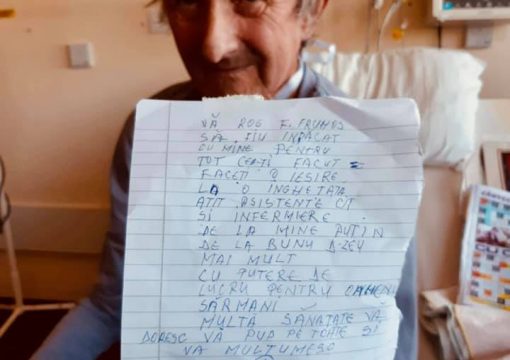 VĂ ROG F. FRUMOS
SĂ FIU INPACAT
CU MINE PENTRU
TOT CEAȚI FACUT
FACEȚI O IESIRE
LA O INGHETATA
ATIT ASISTENTE CIT
SI INFERMIERE
DE LA MINE PUTIN
DE LA BUNU D-ZEU
MAI MULT
CU PUTERE DE
LUCRU PENTRU OAMENI
SĂRMANI
MULTA SANATATE VĂ
DORESC VĂ PUP PE TOATE SI
VA MULTUMESC